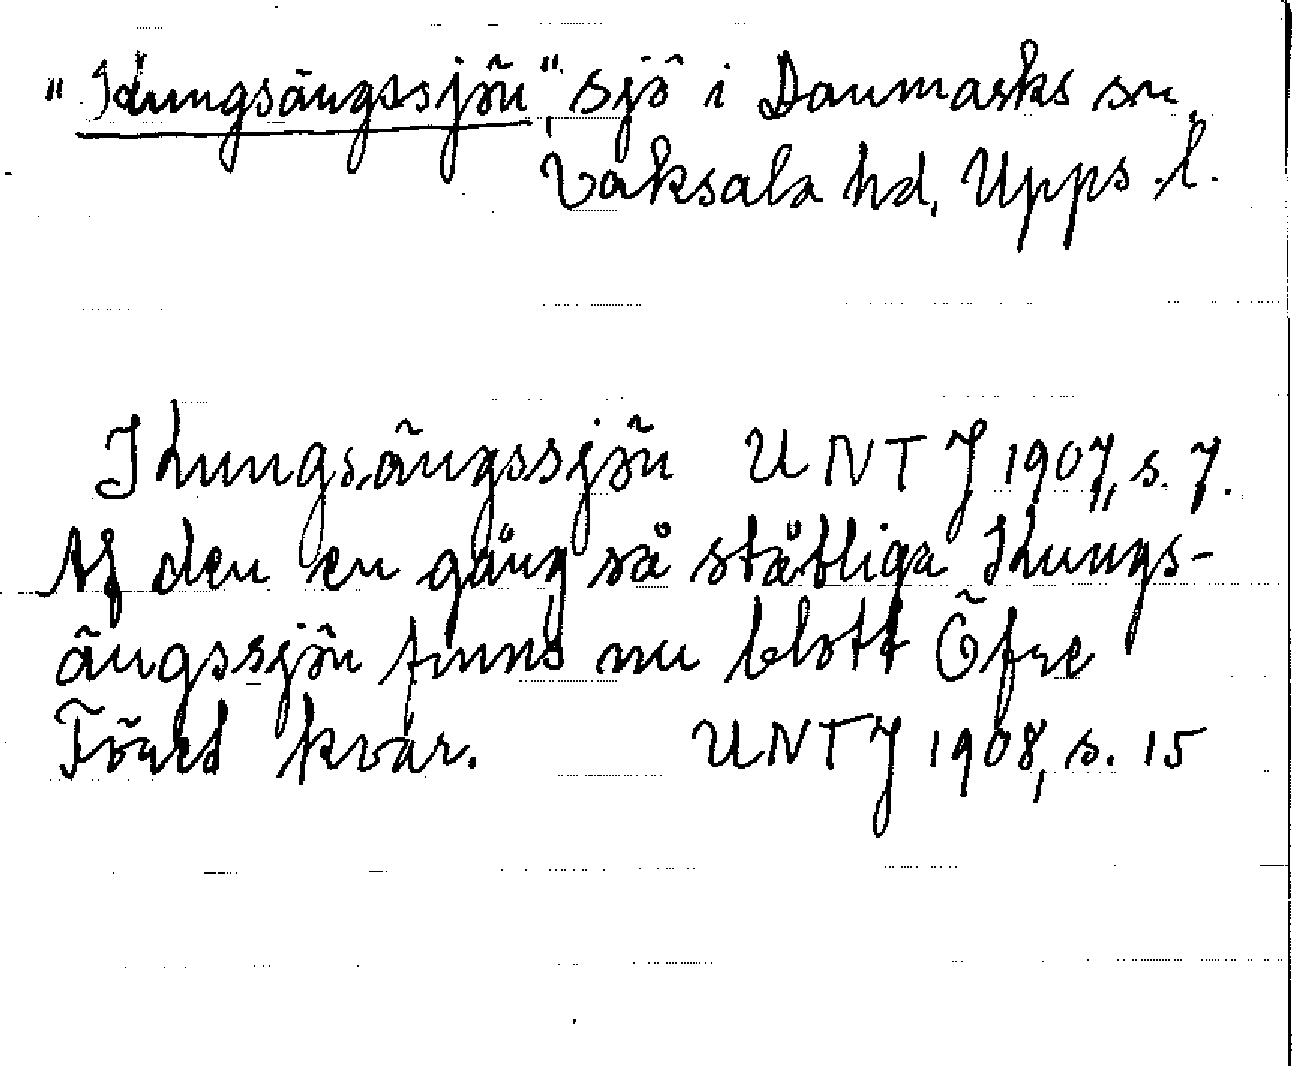 "Kungsängssjön", sjö i Danmarks sn,
Vaksala hd, Upps. l.
Kungsängssjön UNTJ 1907, s. 7.
Af den en gång så ståtliga Kungs-
ängssjön finns nu blott Öfre
Föret kvar. UNTJ 1908, s. 15